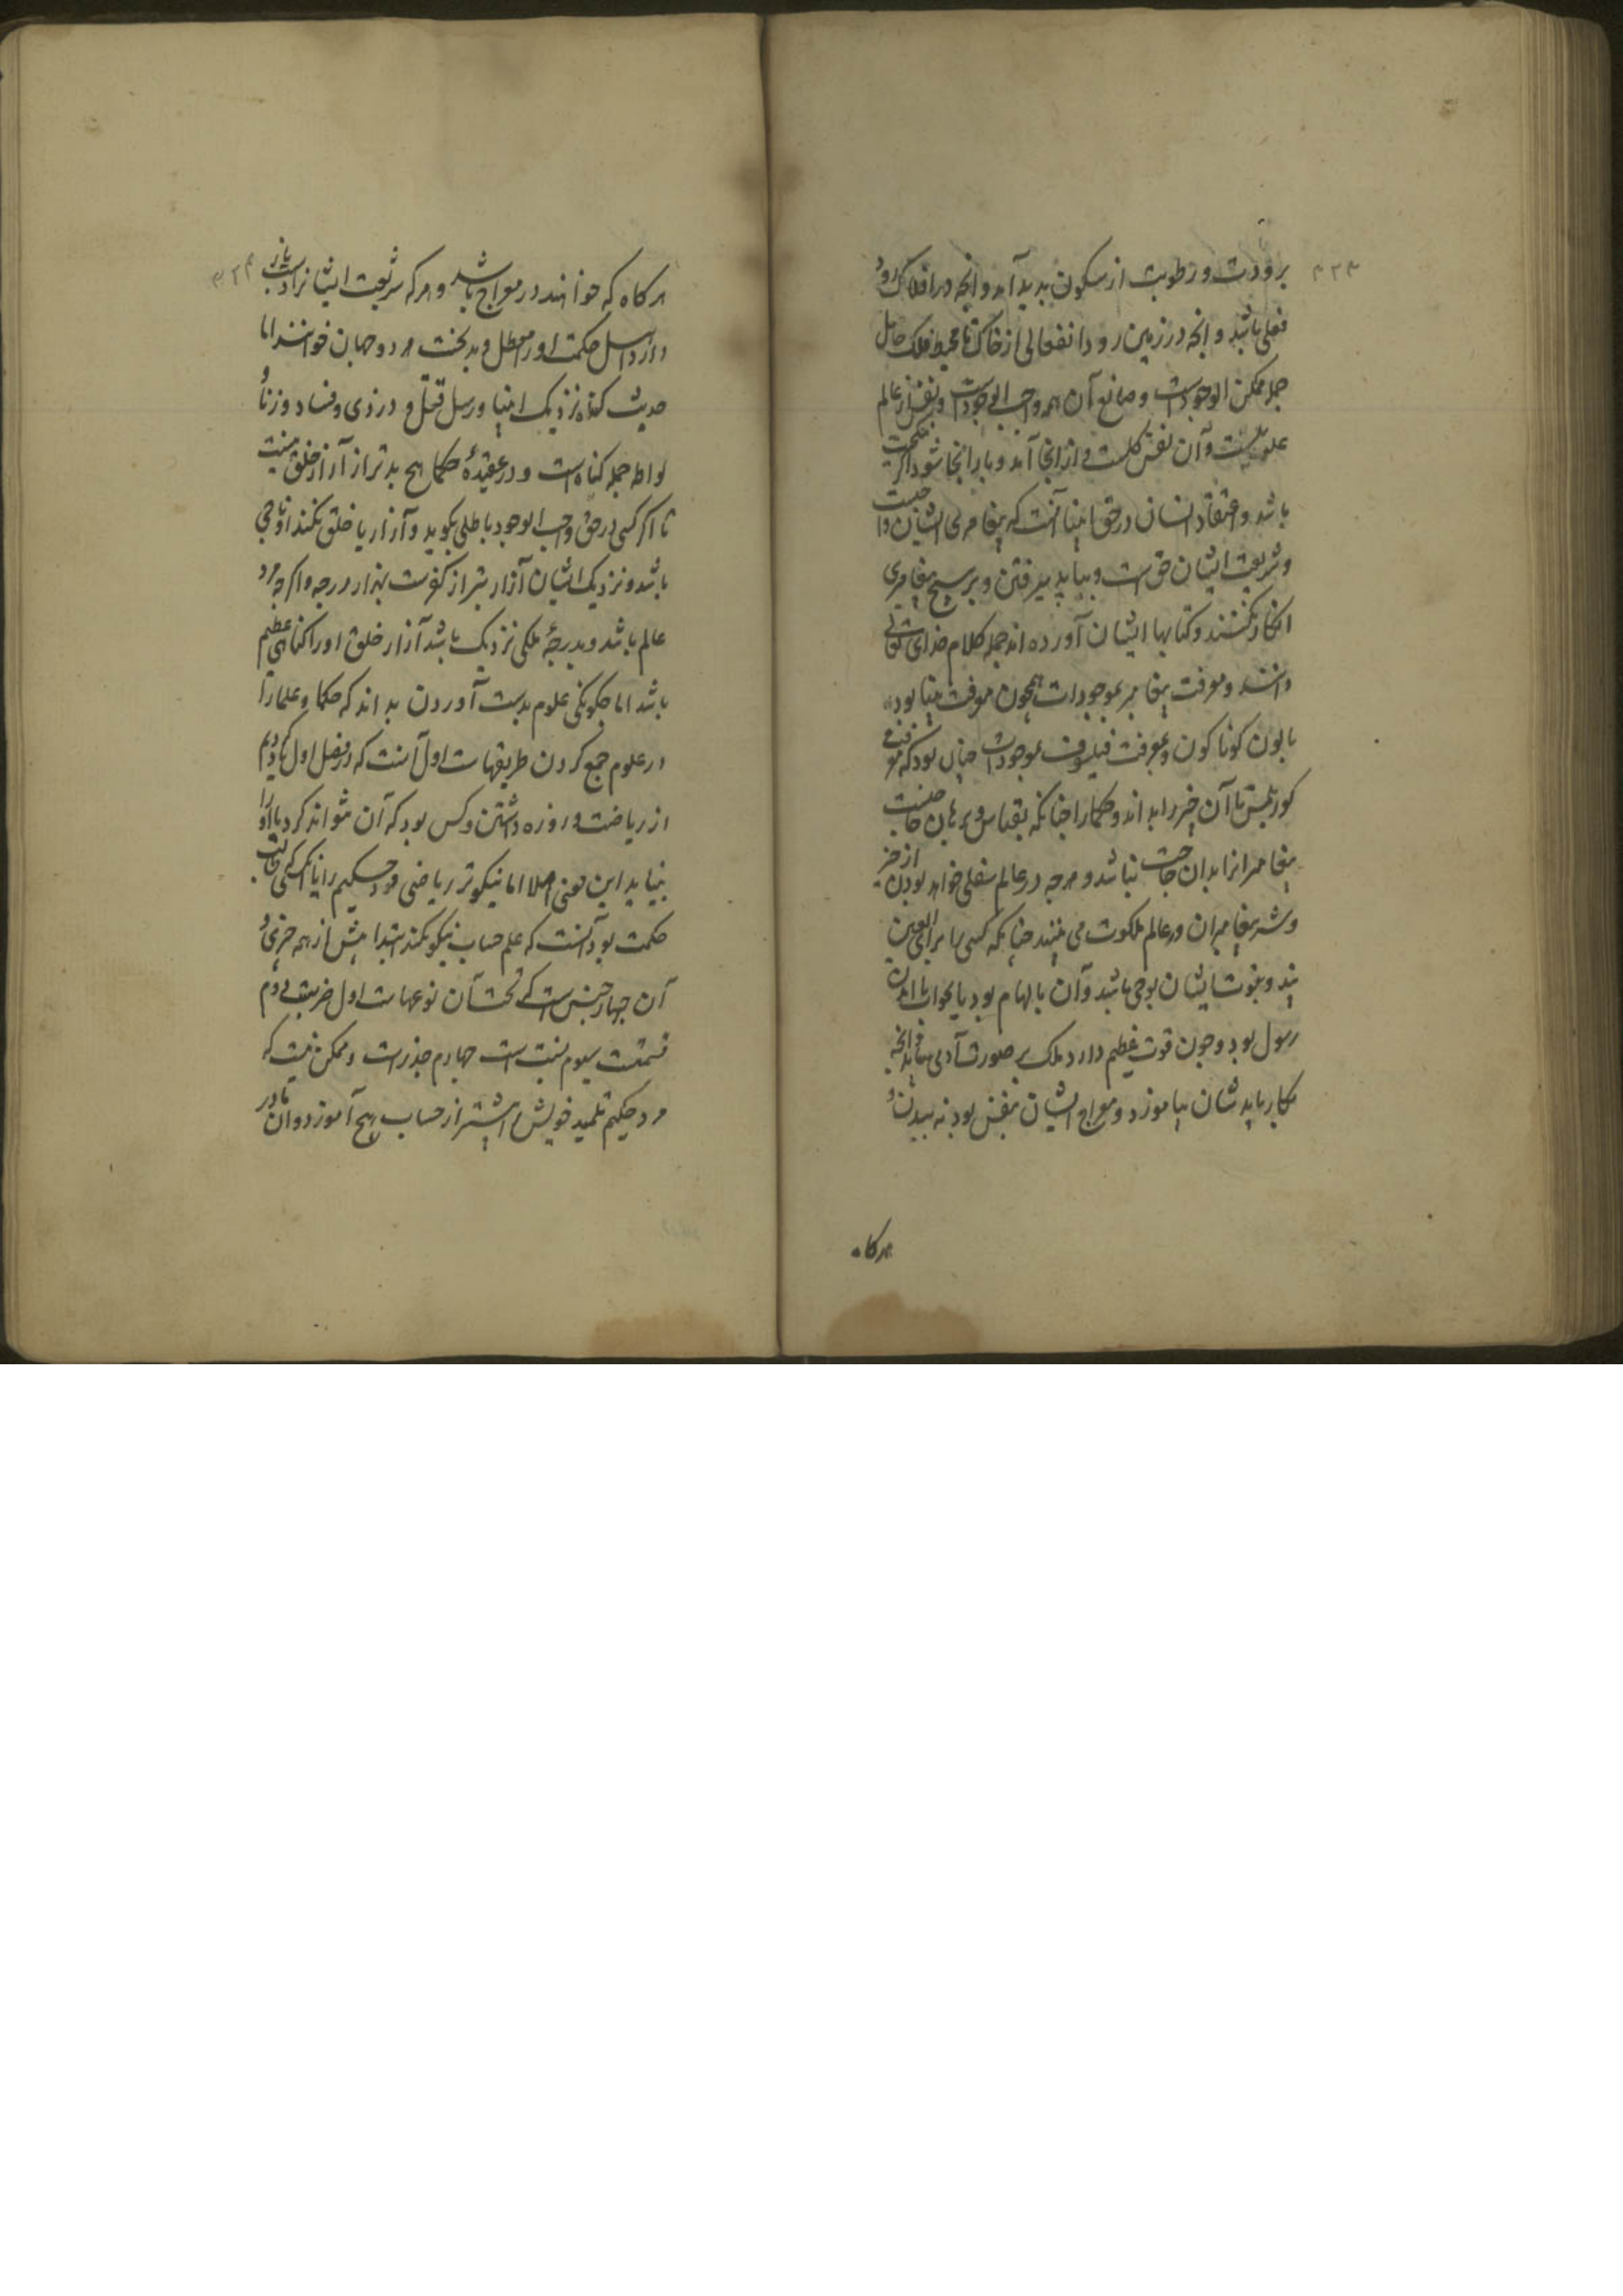 ۴۲۳
برودت و رطوبت از سکون پدید آمد و انچه در افلاک رود
فعلی باشد و انچه در زمین رود انفعالی از خاک تا محیط فلک
جمله ممکن الوجودست و صانع آن همه واجب الوجودست و نفس از عالم
علویست و آن نفس کلست از انجا آمد و باز انجا شود اگر
باشد و اعتقاد ایشان در حق انبیا آنست که پیغامبری ایشان
و شریعت ایشان حق است و بباید پذیرفتن و بر هیچ پیغامبری
انکار نکنند و کتابها ایشان آورده اند جمله کلام خدای تعالی
دانند و معرفت پیغامبر بموجودات همچون معرفت بینا بود
بالون کوناکون و معرفت فیلسوف بموجودات چنان بود که
کور بلمس تا آن چیز را بداند و حکما را چنانکه بقیاس و برهان حاجتست
پیغامبرانرا بدان حاجت نباشد و هرچه در عالم سفلی خواهد بودن از خیر
و شر پیغامبران در عالم ملکوت می بینند چنانکه کسی برای العین
بیند و نبوت ایشان بوحی باشد و آن بالهام بود یا بخواب یا
رسول بود و چون قوت عظیم دارد ملک بر صورت آدمی بیند و انچه
بکار بایدشان بیاموزد و معراج ایشان بنفس بود نه ببدن و
هرکاه
هرکاه که خواهند در معراج باشند و هرکه شریعت ایشانرا
دارد اهل حکمت او را معطل و بدبخت هر دو جهان خوانند اما
حدیث کناه نزدیک انبیا و رسل قتل و دزدی و فساد و زنا و
لواطه جمله کناهست و در عقیدهٔ حکما هیچ بدتر از آزار خلق نیست
تا اکر کسی در حق واجب الوجود باطلی بکوید و آزار یا خلق نکند او ناجی
باشد و نزدیک ایشان آزار بتر از کفرست بهزار درجه و اکرچه مرد
عالم باشد و بدرجهٔ ملکی نزدیک باشد آزار خلق او را کناهی عظیم
باشد اما چکونکی علوم بدست آوردن بداند که حکما و علما را
در علوم جمع کردن طریقهاست اول آنست که در فصل اول یاد
از ریاضت و روزه داشتن و کس بود که آن نتواند کرد یا او را
بنیاید این معنی اصلا اما نیکوتر ریاضتی مرد حکیم را یا آنکسی که طالب
حکمت بود آنست که علم حساب نیکو بکند ابتدا پیش از همه چیزی و
آن چهار جنس است که تحت آن نوعهاست اول ضربست دوم
قسمتست سیوم نسبت است چهارم جذرست و ممکن نیست که
مرد حکیم تلمیذ خویش را پیشتر از حساب هیچ آموزد و آن